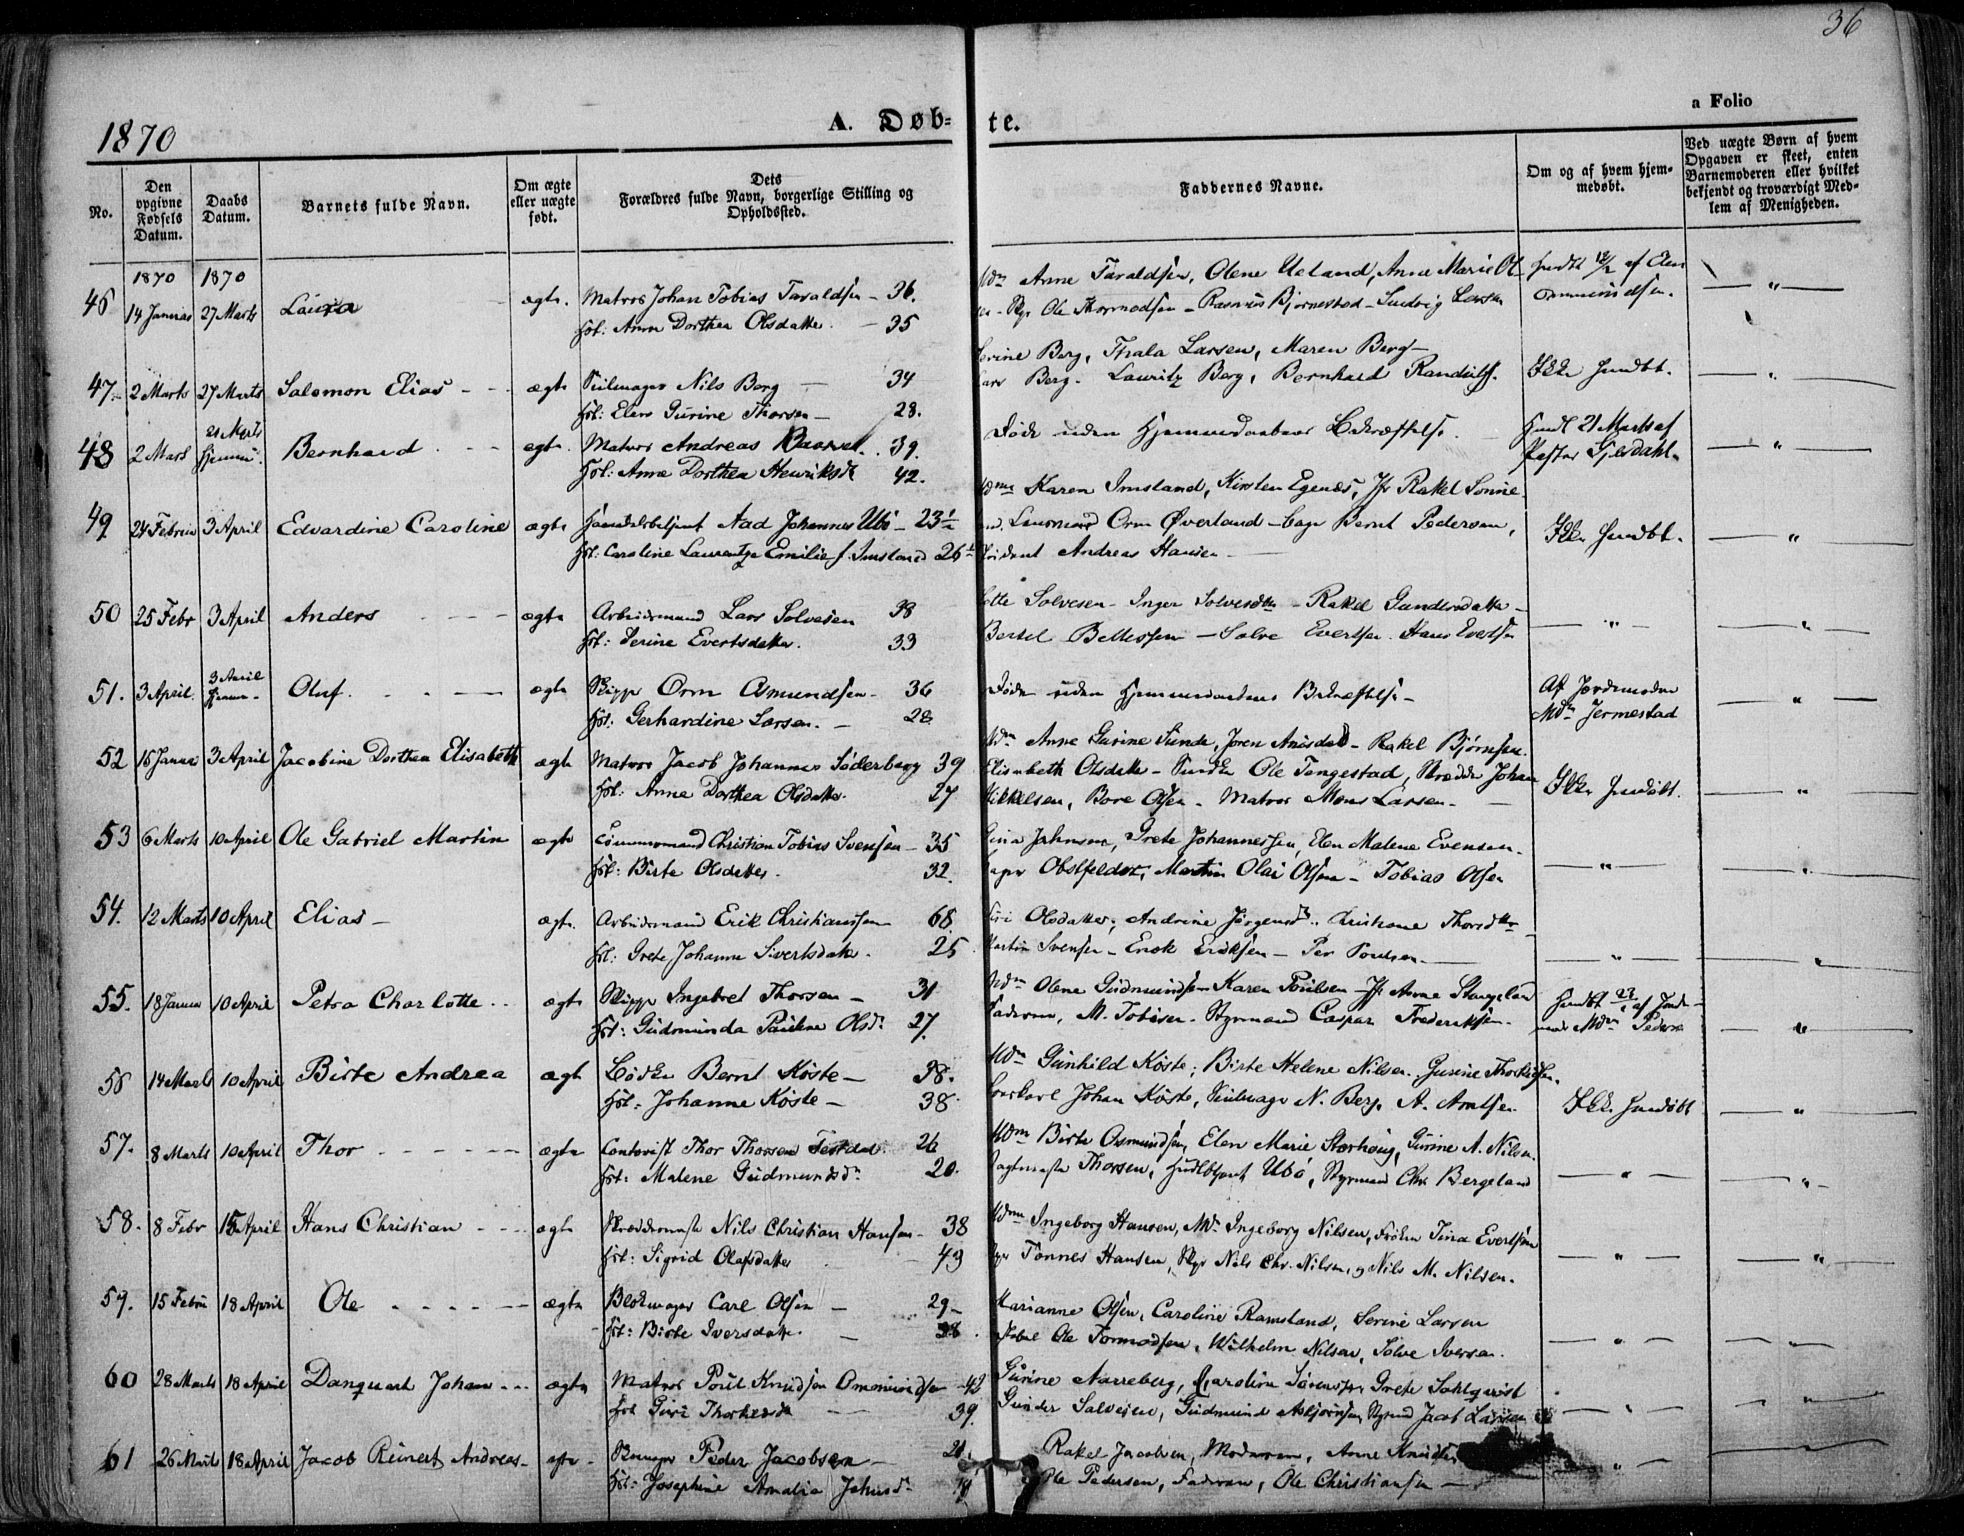 36
a Folio
1870
A. Døb-
te.
No.
Den opgivne Fødsels Datum.
Daabs Datum.
Barnets fulde Navn.
Om ægte eller uægte født.
Dets Forældres fulde Navn, borgerlige Stilling og Opholdssted.
Faddernes Navne.
Om og af hvem hjemmedøbt.
Ved uægte Børn af hvem Opgaven er skeet, enten Barnemoderen eller hvilket bekjendt og troværdigt Medlem af Menigheden.
1870 1870
46 14 Januar 27 Marts Laura ægte. Matros Johan Tobias Taraldsen - 36.
Anne Dorthea Olsdatter. - 35
Anne Taraldsen, Olene Ueland, Anne Marie
Ole Thormodsen - Rasmus Bjørnestad - Ludvig Larsen
47. 2 Marts 27 Marts Salomon Elias ægte Seilmager Nils Berg - 34
Elen Gurine Thorsen - 28.
Serine Berg, Thala Larsen, Maren Berg -
Lars Berg. Lauritz Berg, Bernhard Randulff.
48 2 Mars 21 Marts Bernhard ægte. Matros Andreas 39.
Anne Dorthea Henriksdt 42.
Døde uden Hjemmedaabens Bekræftelse.
21 Marts af Pastor Gjerdahl.
49 24 Februar 3 April Edvardine Caroline ægte Aad Johannes Ubö - 23½
Caroline Laurentze Emilie f Imsland 26
Karen Imsland, Kirsten Egenæs, Jfr Rakel Sømme
Orm Øverland - Bernt Pedersen,
Andreas Hansen -
50 25 Febr 3 April Anders ægte Arbeidsmand Lars Solvesen 38
Serine Evertsdatter. 33
Solvesen - Inger Solvesdtr - Rakel Gundersdatter -
Bertel Bertelsen - Solve Evertsen. Hans Evertsen
51. 3 April 3 April Oluf. ægte Skipper Orm Asmundsen - 36
Gerhardine Larsen. - 28
Døde uden Hjemmedaabens Bekræftelse -
Af Jordemoder Mdm Jermestad
52 16 Januar 3 April Jacobine Dorthea Elisabeth ægte Matros Jacob Johannes Söderberg 39
Anne Dorthea Olsdatter. 27
Mdm Anne Gurine Sunde, Rakel Bjørnsen.
Elisabeth Olsdatter - Ole Tengestad, Skrædder Johan
Mikkelsen, Bore Olsen - Matros Mons Larsen -
53 6 Marts 10 April Ole Gabriel Martin ægte Tømmermand Christian Tobias Svensen - 35
Birte Olsdatter. 32.
Gina Johnsen, Grete Johannessen, Elen Malene Evensen.
Obstfelder, Martin Olai Olsen - Tobias Olsen
54. 12 Marts 10 April Elias - ægte. Arbeidsmand Erik Christianssen 68
Grete Johanne Sivertsdatter. 25
Siri Olsdatter; Andrine Jörgensdtr. Thorsdtr -
Martin Svensen - Enok Eriksen - Per Poulsen -
55. 18 Januar 10 April Petra Charlotte ægte Skipper Ingebret Thorsen - 31
Gudmunda Pauline Olsd. 27.
Mdm Olene Gudmundsen Karen Poulsen - Jfr Anne Stangeland
Faderen, M. Tobisen - Styrmand Caspar Frederiksen -
56 14 Marts 10 April Birte Andrea ægte Bødker Bernt Köste - 38.
Johanne Köste - 38
Mdm Gunhild Köste; Birte Helene Nilsen. Gurine Thorkildsen.
Johan Köste, Seilmager N. Berg. A. Arntsen
57. 8 Marts 10 April Thor ægte Contorist Thor Thorsen 26
Malene Gudmundsd. 20.
Mdm Birte Osmundsen, Elen Marie Storhoug, Gurine A. Nilsen.
Thorsen, Ubö, Styrmand Chr Bergeland
58. 8 Febr 15 April Hans Christian ægte Skræddermester Nils Christian Hansen - 38
Sigrid Olafsdatter 43
Mdm Ingeborg Hansen, Mdm Ingeborg Nilsen, Frøken Tina Evertsen
Tönnes Hansen, Skpr Nils Chr. Nilsen, og Nils M. Nilsen.
59. 15 Febru 18 April Ole ægte Blokmager Carl Olsen - 29 -
Birte Iversdatter. 38
Marianne Olsen, Caroline Ramsland, Serine Larsen
Ole Tormodsen, Wilhelm Nilsen, Solve Iversen.
60 28 Marts 18 April Danquart Johan ægte Matros Poul Knudsen Ommundsen 42
Siri Thorkersdt 39.
Gurine Narreberg, Karoline Sörensen, Grete Sahlqvist
Gunder Salvesen, Gudmund Asbjørnsen, Styrmd Jacob Larsen
61 26 Marts 18 April Jacob Reinert Andreas - ægte - Peder Jacobsen -
Josephine Amalia Johnsd. 19
Rakel Jacobsen, Moderen, Anne Knudsen
Ole Pedersen, Faderen, Ole Christiansen -